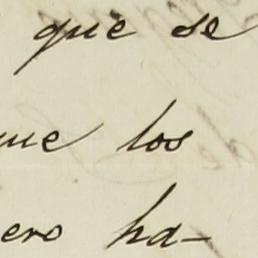 que se
ue los
ero ha-